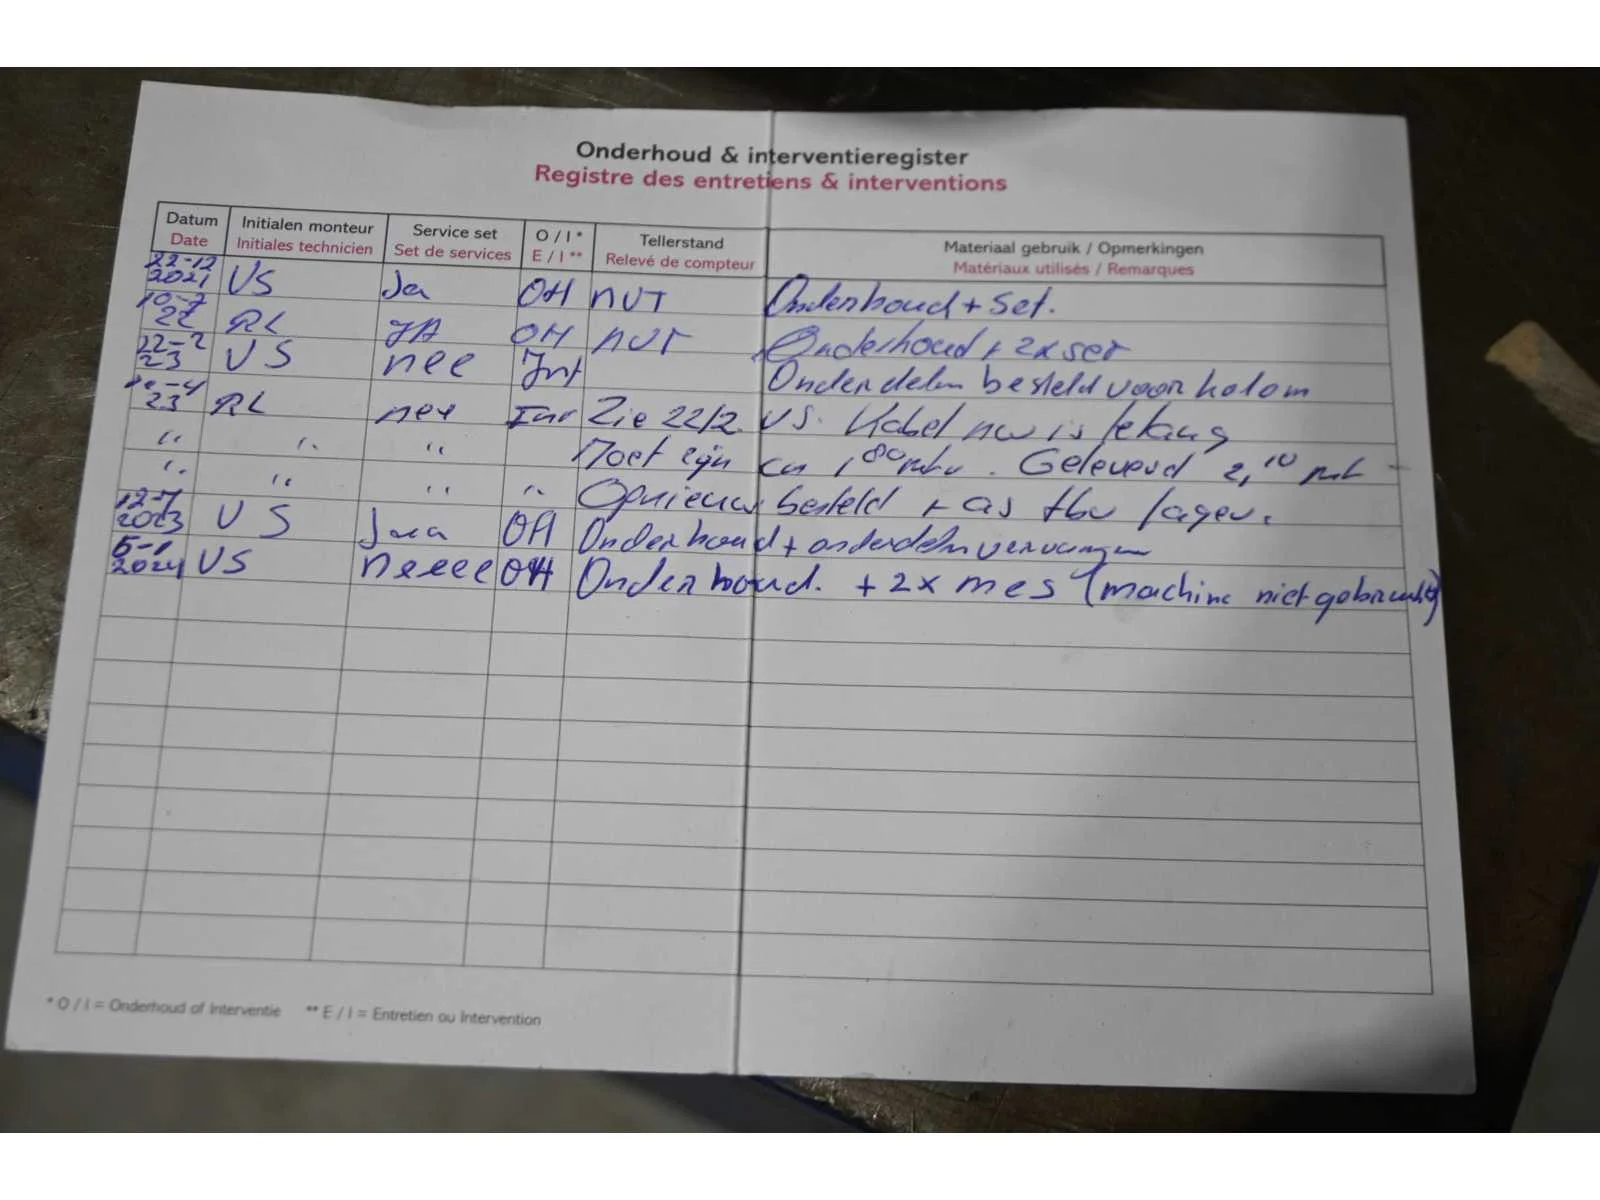 Onderhoud & interventieregister
Registre des entretiens & interventions
Datum Initialen monteur Service set O / I * Tellerstand Materiaal gebruik / Opmerkingen
Date Initiales technicien Set de services E / I ** Relevé de compteur Matériaux utilisés / Remarques
22-12 2021 VS Ja OH NVT Onderhoud + Set.
10-7 22 RL JA OH NVT Onderhoud + 2x set
22-2 23 VS nee Int Onderdelen besteld voor kolom
23 RL nee Int Zie 22/2 VS. Kabel nw is te lang
" " " Moet zijn ca 1,80 mtr. Geleverd 2,10 mt
" " " " Opnieuw besteld + as tbv lager.
12-7 2023 VS Jaa OH Onderhoud + onderdelen vervangen
5-1 2024 VS neeee OH Onderhoud. + 2x mes (machine niet gebruikt)
* O / I = Onderhoud of Interventie ** E / I = Entretien ou Intervention